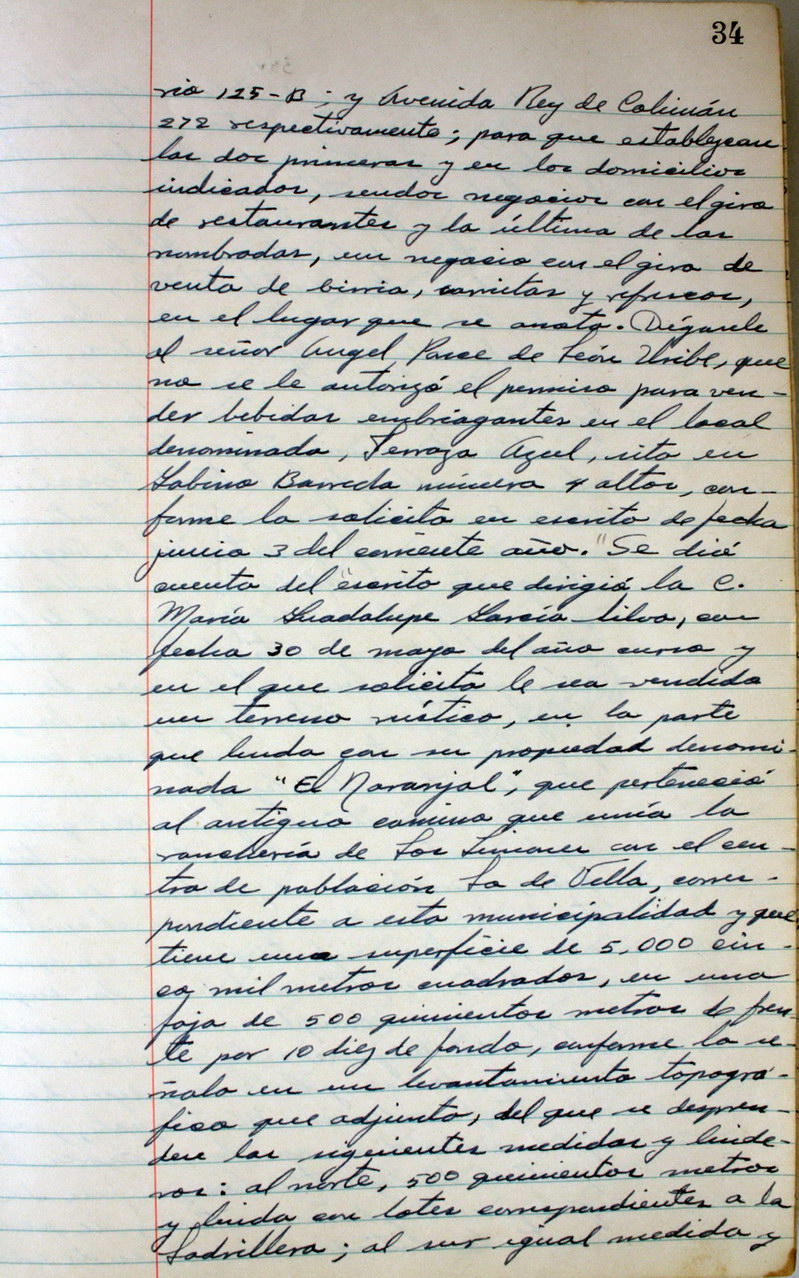 34
rio 125-B; y Avenida Rey de Colimán
272 respectivamente; para que establezcan
las dos primeras y en los domicilios
indicados, sendos negocios con el giro
de restaurantes y la última de las
nombradas, un negocio con el giro de
venta de birria, carnitas y refrescos,
en el lugar que se anota. Dígasele
al señor Angel Ponce de León Uribe, que
no se le autorizó el permiso para ven-
der bebidas embriagantes en el local
denominado, Terraza Azul, sito en
Sabino Barreda número 4 altos, con-
forme lo solicita en escrito de fecha
junio 3 del corriente año. "Se dió
cuenta del "escrito que dirigió la C.
María Guadalupe García Silva, con
fecha 30 de mayo del año curso y
en el que solicita le sea vendido
un terreno rústico, en la parte
que linda con su propiedad denomi-
nada "El Naranjal", que perteneció
al antiguo camino que unía la
ranchería de Los Limones con el cen-
tro de población Lo de Villa, corres-
pondiente a esta municipalidad y que
tiene una superficie de 5,000 cin-
co mil metros cuadrados, en una
faja de 500 quinientos metros de fren-
te por 10 diez de fondo, conforme lo se-
ñala en un levantamiento topográ-
fico que adjunto, del que se despren-
den las siguientes medidas y linde-
ros: al norte, 500 quinientos metros
y linda con lotes correspondientes a la
Ladrillera; al sur igual medida y